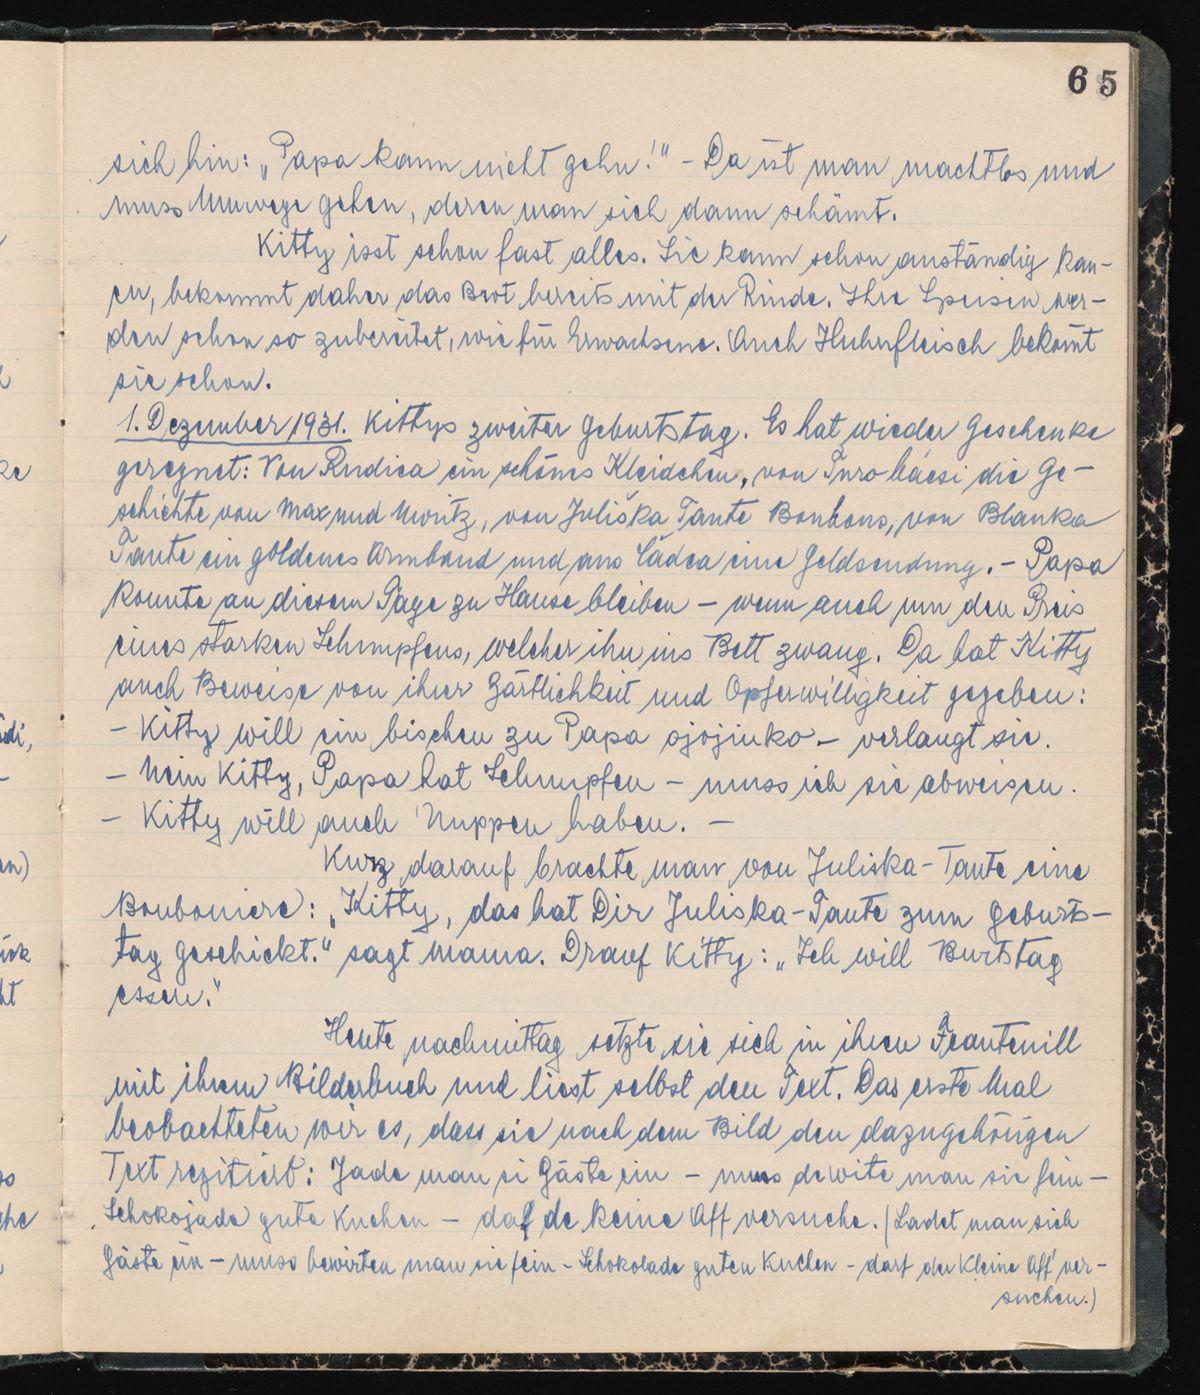 65
sich hin: „Papa kann nicht gehn!" – Da ist man machtlos und
muss Umwege gehen, deren man sich dann schämt.
Kitty isst schon fast alles. Sie kann schon anständig kau-
en, bekommt daher das Brot bereits mit der Rinde. Ihre Speisen wer-
den schon so zubereitet, wie für Erwachsene. Auch Huhnfleisch bekom̅t
sie schon.
1. Dezember 1931. Kittys zweiter Geburtstag. Es hat wieder Geschenke
geregnet: Von Rudica ein schönes Kleidchen, von Puro bácsi die Ge-
schichte von Max und Moritz, von Juliška Tante Bonbons, von Blanka
Tante ein goldenes Armband und aus Čadca eine Geldsendung. – Papa
konnte an diesem Tage zu Hause bleiben – wenn auch um den Preis
eines starken Schnupfens, welcher ihn ins Bett zwang. Da hat Kitty
auch Beweise von ihrer Zärtlichkeit und Opferwilligkeit gegeben:
– Kitty will ein bischen zu Papa ojojinko – verlangt sie.
– Nein Kitty, Papa hat Schnupfen – muss ich sie abweisen.
– Kitty will auch Nuppen haben. –
Kurz darauf brachte man von Juliska-Tante eine
Bonboniere: „Kitty, das hat Dir Juliska-Tante zum Geburts-
tag geschickt." sagt Mama. Drauf Kitty: „Ich will Burtstag
essen."
Heute nachmittag setzte sie sich in ihren Feautenill
mit ihrem Bilderbuch und liest selbst den Text. Das erste Mal
beobachteten wir es, dass sie nach dem Bild den dazugehörigen
Text rezitiert: Jade man si Gäste ein – muss dewite man sie fein –
Schokojade gute Kuchen – daf de keine Aff versuche. (Ladet man sich
Gäste ein – muss bewirten man sie fein – Schokolade guten Kuchen – darf der kleine Aff' ver-
suchen.)